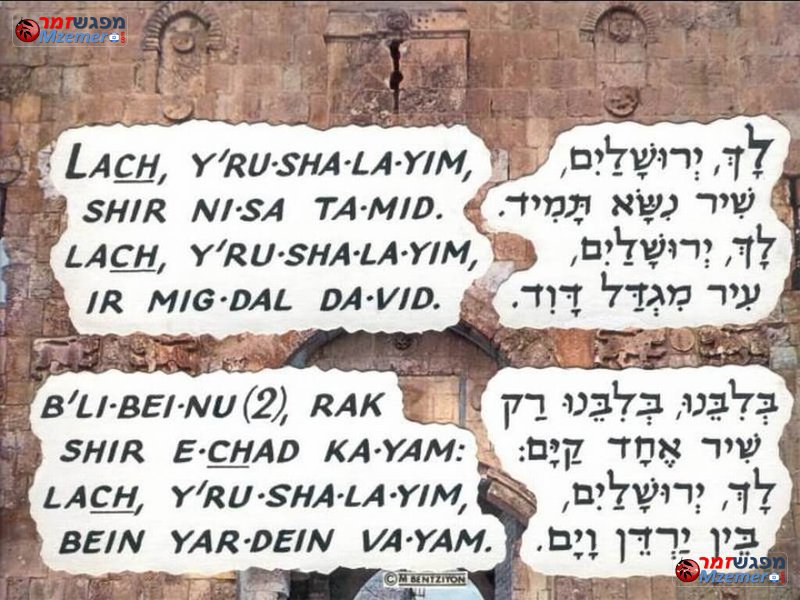 מפגש זמר
Mzemer.com
מפגש זמר
Mzemer.com
LACH, Y'RU·SHA·LA·YIM,
SHIR NI·SA TA·MID.
LACH, Y'RU·SHA·LA·YIM,
IR MIG·DAL DA·VID.
לָךְ, יְרוּשָׁלַיִם,
שִׁיר נִשָּׂא תָּמִיד.
לָךְ, יְרוּשָׁלַיִם,
עִיר מִגְדַּל דָּוִד.
B'LI·BEI·NU (2), RAK
SHIR E·CHAD KA·YAM:
LACH, Y'RU·SHA·LA·YIM,
BEIN YAR·DEIN VA·YAM.
בְּלִבֵּנוּ, בְּלִבֵּנוּ רַק
שִׁיר אֶחָד קַיָּם:
לָךְ, יְרוּשָׁלַיִם,
בֵּין יַרְדֵּן וָיָם.
© M BENTZIYON
מפגש זמר
Mzemer.com